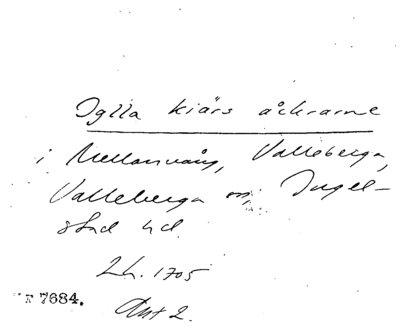 Iglla kiärs åckrarne
i Mellanvång, Valleberga,
Valleberga sn, Ingel-
stad hd.
Lh. 1705
7684.
Akt 2.